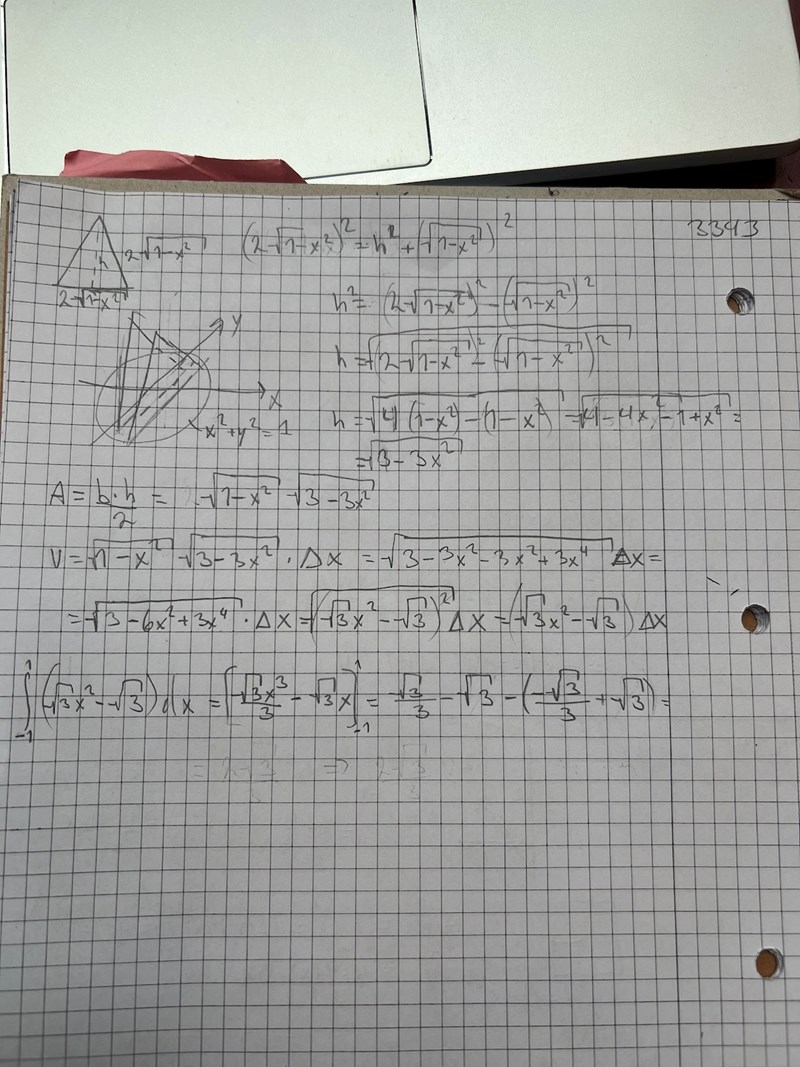 3343
2√(1-x²)
h
2√(1-x²)
(2√(1-x²))² = h² + (√(1-x²))²
h² = (2√(1-x²))² - (√(1-x²))²
h = √((2√(1-x²))² - (√(1-x²))²)
y
x
x² + y² = 1
h = √(4(1-x²) - (1-x²)) = √(4-4x²-1+x²) =
= √(3-3x²)
A = b·h/2 = √(1-x²) √(3-3x²)
V = √(1-x²) √(3-3x²) · Δx = √(3-3x²-3x²+3x⁴) Δx =
= √(3-6x²+3x⁴) · Δx = √((√3x²-√3)²) Δx = (√3x²-√3) Δx
∫₋₁¹ (√3x²-√3) dx = [√3x³/3 - √3x]₋₁¹ = √3/3 - √3 - (-√3/3 + √3) =